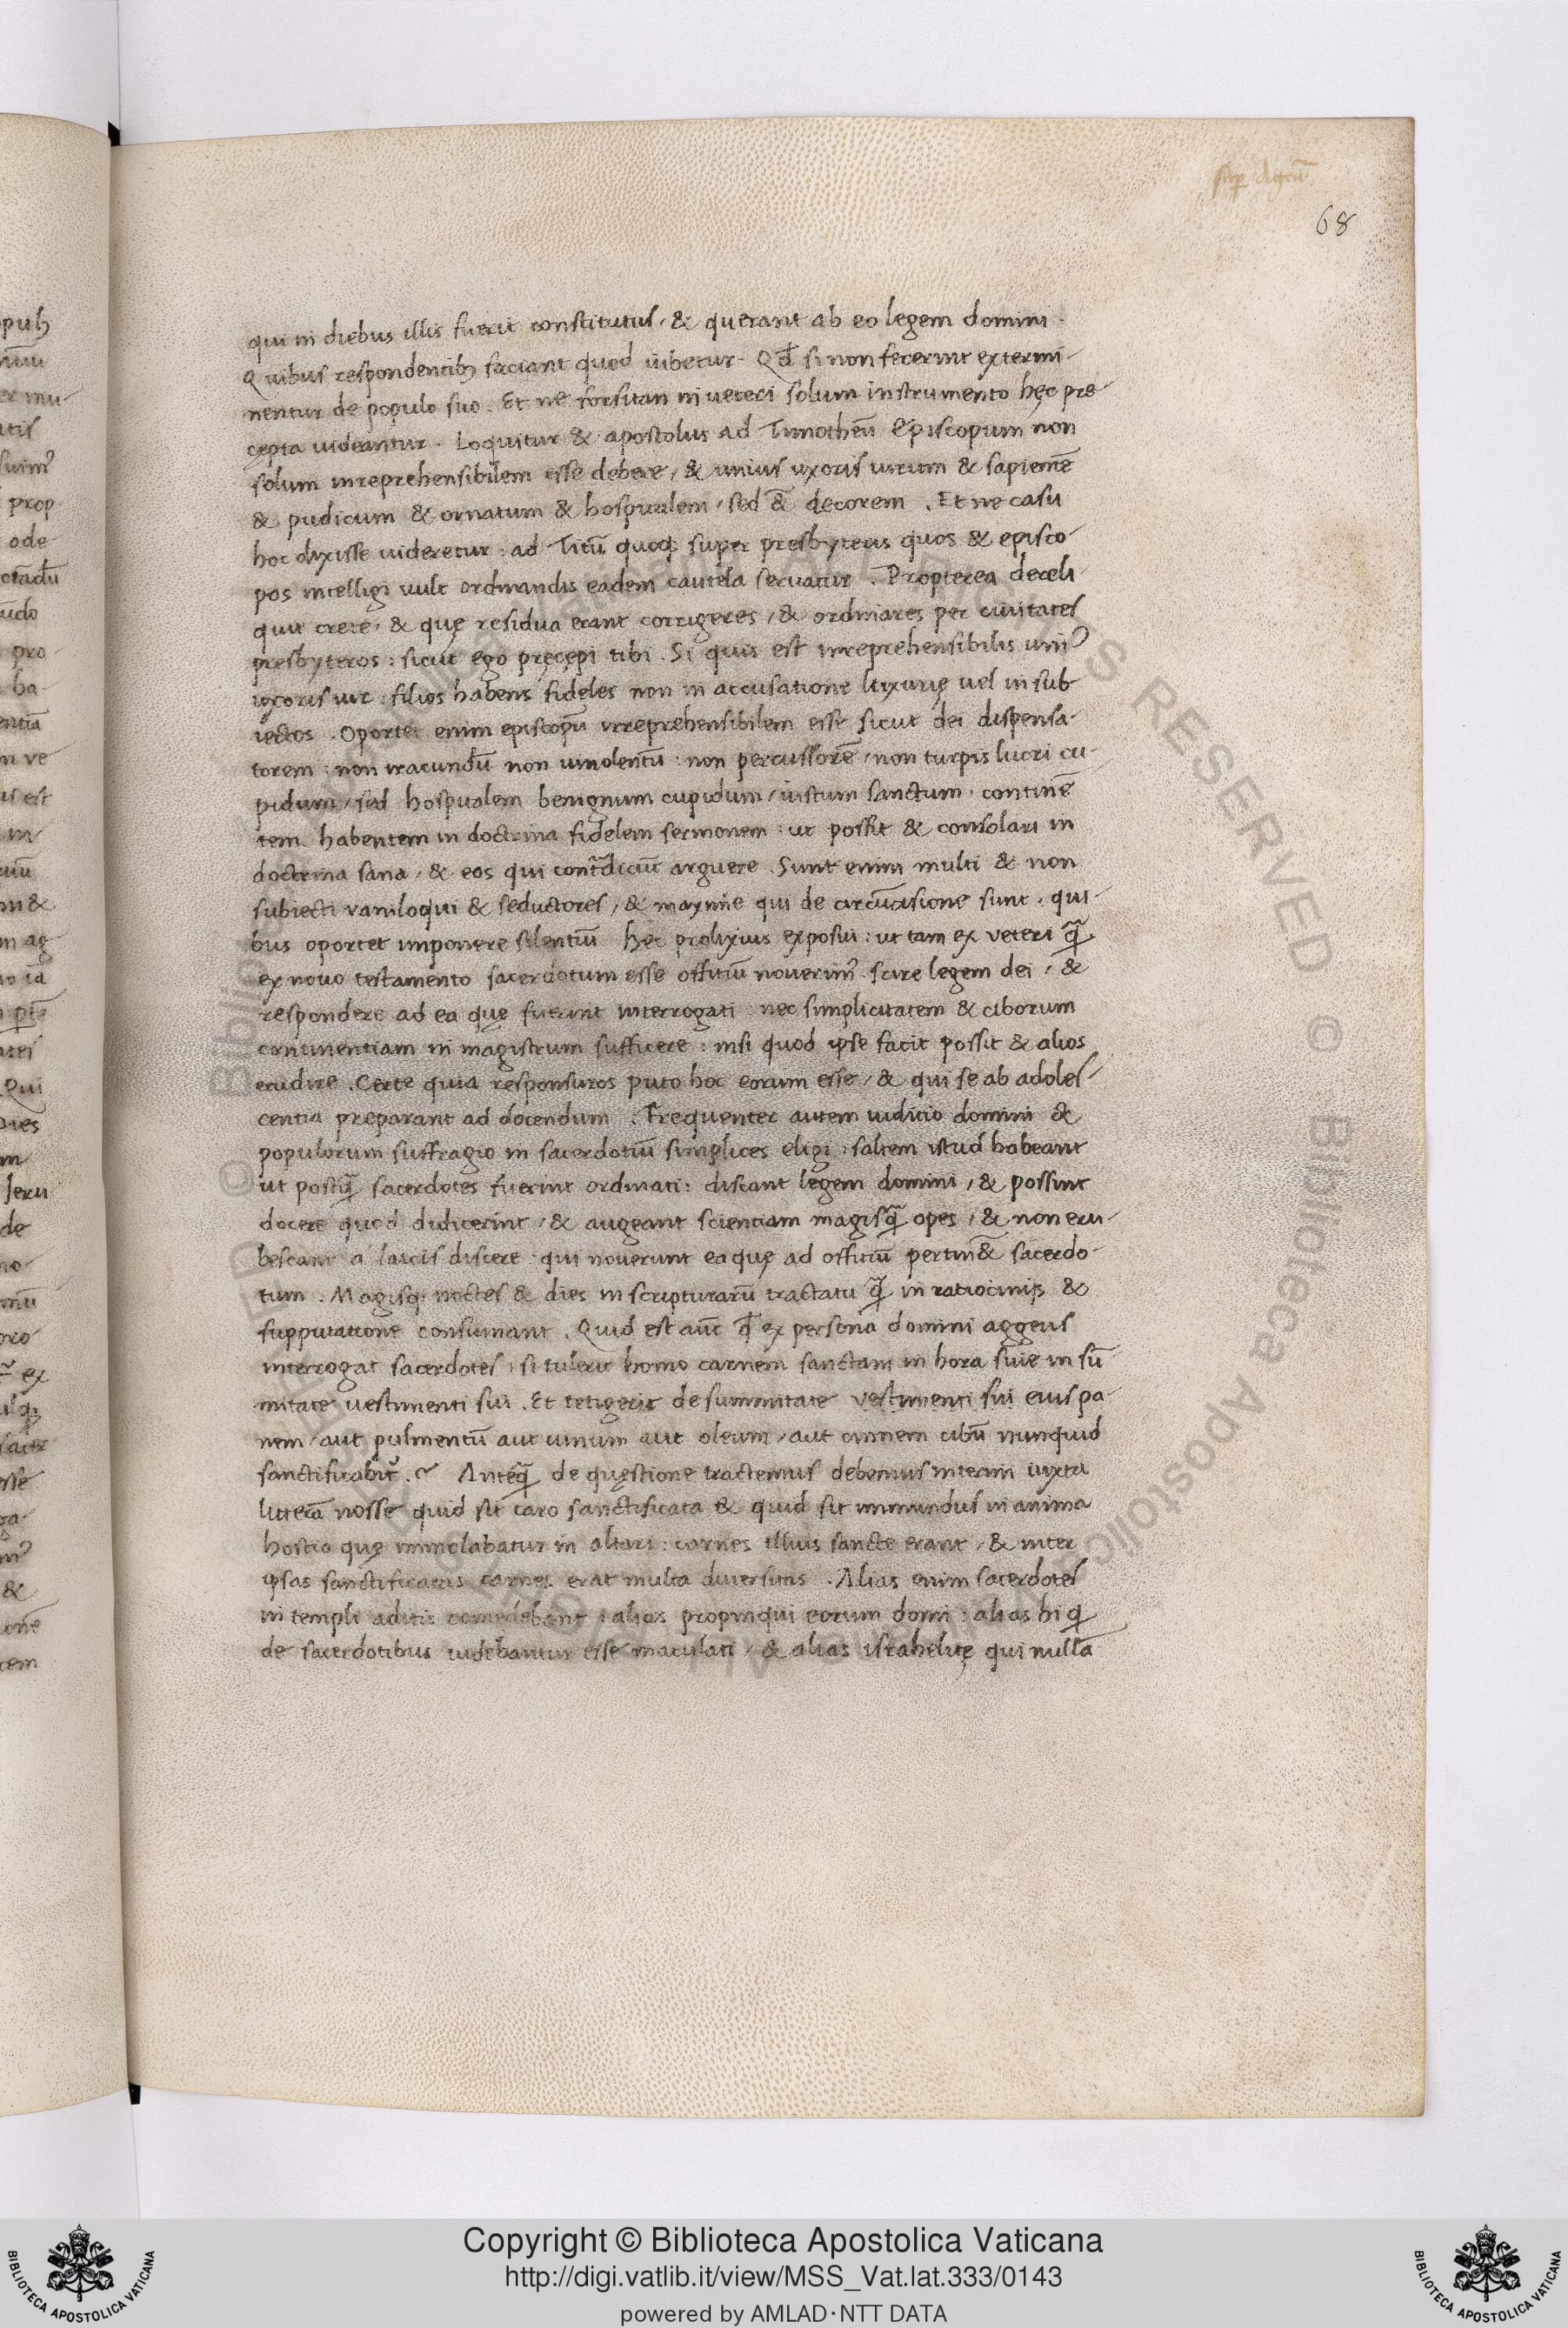 sup Ageū
68
qui in diebus illis fuerit constitutus, & querant ab eo legem domini.
Quibus respondentibꝫ faciant quod iubetur. Qđ si non fecerint extermi-
nentur de populo suo. Et ne forsitan in ueteri solum instrumento hęc pre-
cępta uideantur. Loquitur & apostolus ad Timotheū Episcopum non
solum inreprehensibilem esse debere, & unius uxoris uirum & sapientē
& pudicum & ornatum & hospitalem, sed & decorem. Et ne casu
hoc dixisse uideretur: ad Titū quoqꝫ super presbyteris quos & episco-
pos intelligi vult ordinandis eadem cautela seruatur. Propterea dereli-
qui te crete, & quę residua erant corrigeres, & ordinares per ciuitates
presbyteros: sicut ego pręcępi tibi. Si quis est inreprehensibilis uniꝰ
uxoris uir: filios habens fideles non in accusatione luxurię uel in sub
iectos. Oportet enim episcopū irreprehensibilem esse sicut dei dispensa-
torem: non iracundū non uinolentū: non percussorē, non turpis lucri cu-
pidum, sed hospitalem benignum cupidum, iustum sanctum. continē
tem habentem in doctrina fidelem sermonem: ut possit & consolari in
doctrina sana, & eos qui cont͛dicūt arguere. Sunt enim multi & non
subiecti vaniloqui & seductores, & maxime qui de circūcisione sunt. qui-
bus oportet imponere silentiū hęc prolixius exposui: ut tam ex veteri q̃
ex nouo testamento sacerdotum esse offitiū nouerimꝰ scire legem dei, &
respondere ad ea quę fuerint interrogati: nec simplicitatem & ciborum
continentiam in magistrum sufficere: nisi quod ipse facit possit & alios
erudire. Certe quia responsuros puto hoc eorum esse, & qui se ab adoles-
centia preparant ad docendum. Frequenter autem iuditio domini &
populorum suffragio in sacerdotiū simplices eligi: saltem istud habeant
ut postq̃ sacerdotes fuerint ordinati: discant legem domini, & possint
docere quod didicerint, & augeant scientiam magisq̃ opes, & non eru-
bescant a laicis discere: qui nouerunt ea quę ad offitiū pertin& sacerdo-
tum. Magisqꝫ noctes & dies in scripturarū tractatu q̃ in ratiocinijs &
supputatione consumant. Quid est aut̄ qđ ex persona domini aggeus
interrogat sacerdotes: si tulerit homo carnem sanctam in hora suie in sū
mitate uestimenti sui. Et tetigerit de summitate vestimenti sui eius pa-
nem, aut pulmentū aut uinum aut oleum, aut omnem cibū nunquid
sanctificabit̉. Anteq̃ de quęstione tractemus debemus interim iuxta
litterā nosse quid sit caro sanctificata & quid sit immundus in anima
hostia quę immolabatur in altari: carnes illius sancte erant, & inter
ipsas sanctificatas carnes erat multa diuersitas. Alias enim sacerdotes
in templi aditis comedebant: alias propinqui eorum domi: alias hi q̄
de sacerdotibus uidebantur esse maculati, & alias israhelitę qui nullā